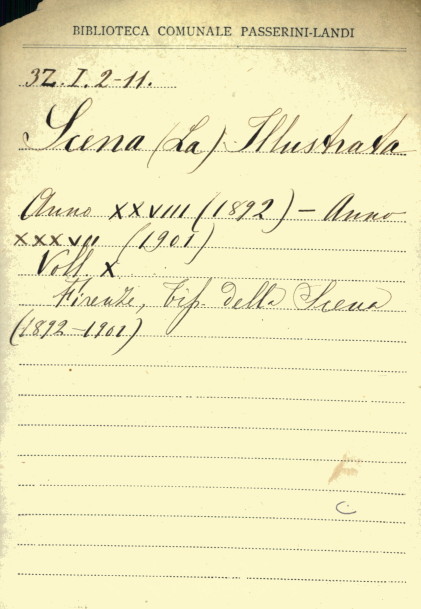 BIBLIOTECA COMUNALE PASSERINI-LANDI
3Z.I.2-11.
Scena (La) Illustrata
Anno XXVIII (1892) - Anno
XXXVII (1901)
Voll. X
Firenze, tip. della Scena
(1892-1901)
C